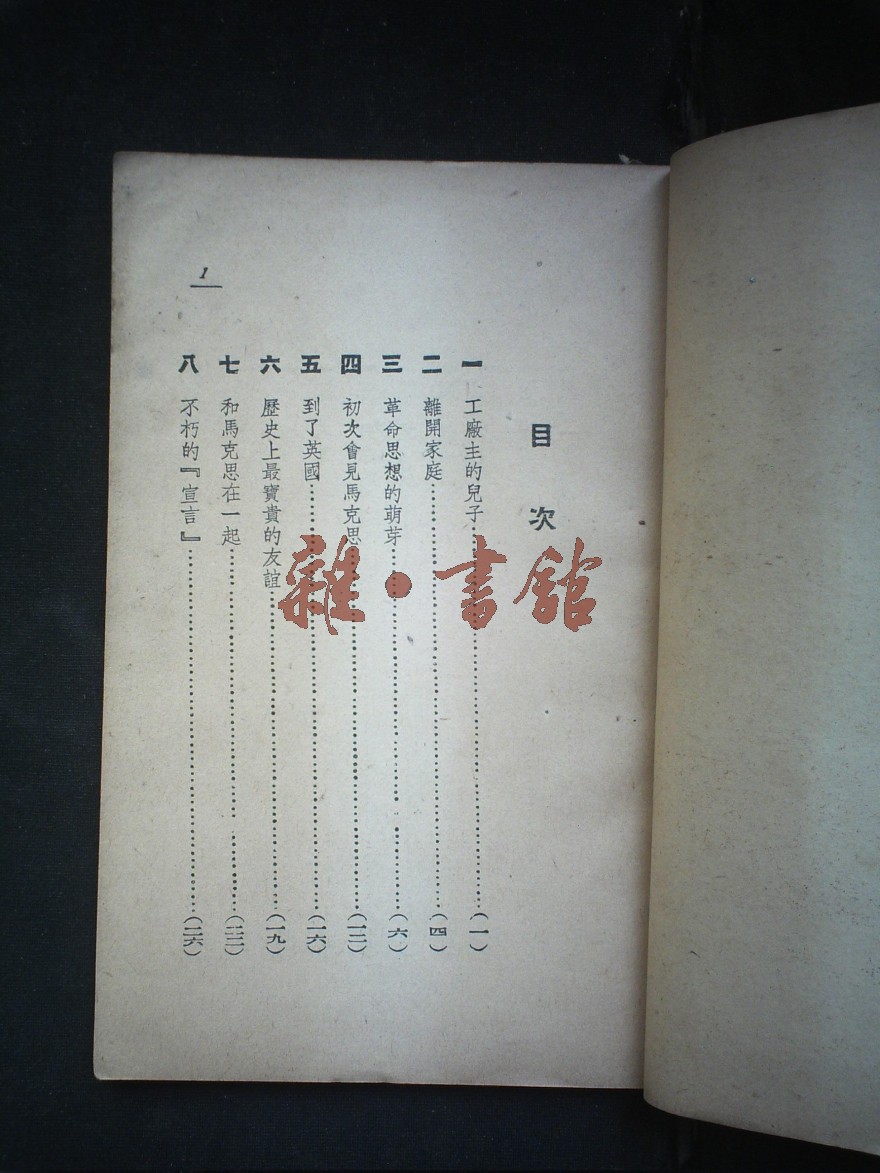 目次
一 工廠主的兒子………(一)
二 離開家庭………(四)
三 革命思想的萌芽………(六)
四 初次會見馬克思………(一二)
五 到了英國………(一六)
六 歷史上最寶貴的友誼………(一九)
七 和馬克思在一起………(二二)
八 不朽的『宣言』………(二六)
1
雜·書舘